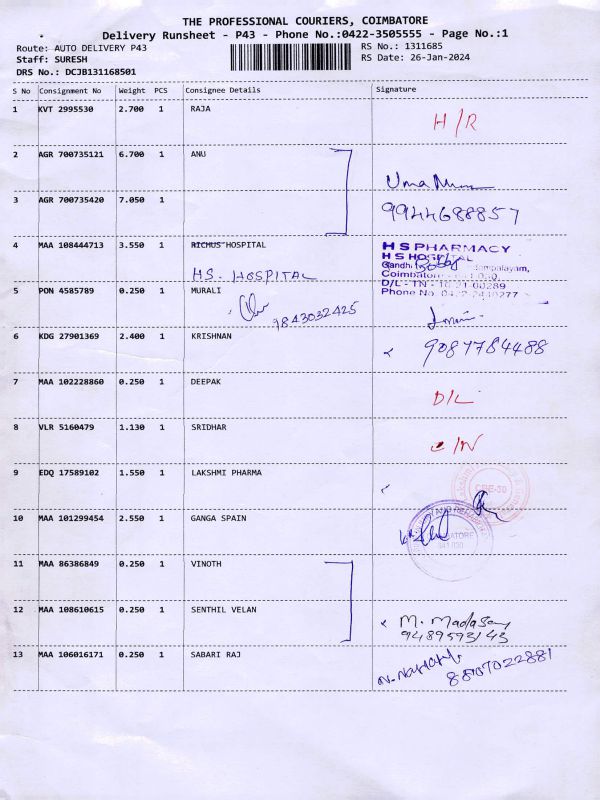 THE PROFESSIONAL COURIERS, COIMBATORE
Delivery Runsheet - P43 - Phone No.:0422-3505555 - Page No.:1
Route: AUTO DELIVERY P43 RS No.: 1311685
Staff: SURESH RS Date: 26-Jan-2024
DRS No.: DCJB131168501
S No Consignment No Weight PCS Consignee Details Signature
1 KVT 2995530 2.700 1 RAJA H/R
2 AGR 700735121 6.700 1 ANU
Uma
3 AGR 700735420 7.050 1 9944688857
4 MAA 108444713 3.550 1 RICHUS HOSPITAL H S PHARMACY
HS. HOSPITAL H S HOSPITAL
Coimbatore
Phone No. 0422-2430277
5 PON 4585789 0.250 1 MURALI
9843032425
6 KDG 27901369 2.400 1 KRISHNAN 9087784488
7 MAA 102228860 0.250 1 DEEPAK D/L
8 VLR 5160479 1.130 1 SRIDHAR C/N
9 EDQ 17589102 1.550 1 LAKSHMI PHARMA
CBE-30
10 MAA 101299454 2.550 1 GANGA SPAIN
11 MAA 86386849 0.250 1 VINOTH
12 MAA 108610615 0.250 1 SENTHIL VELAN M. Madasamy
9489593143
13 MAA 106016171 0.250 1 SABARI RAJ 8807022881